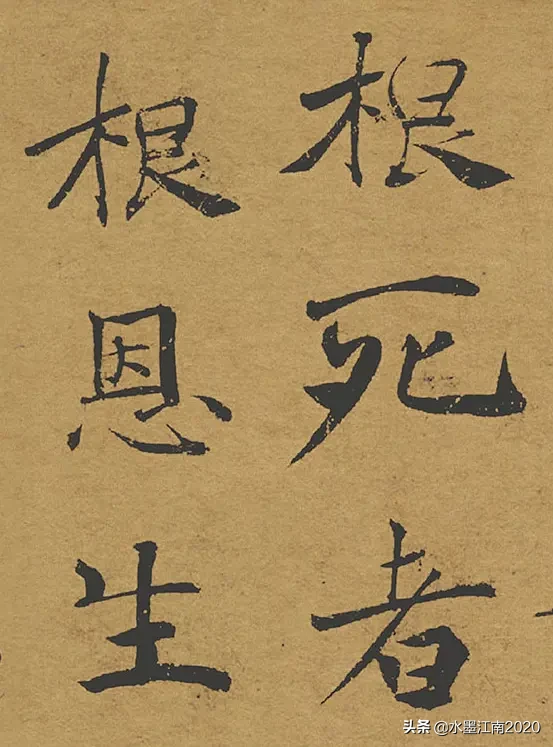 根死者
根恩生
头条 @水墨江南2020